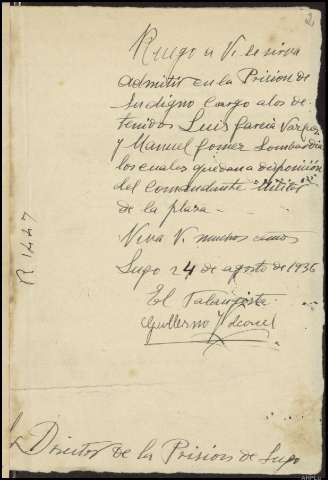 2
Ruego a V. se sirva
admitir en la Pricion de
su digno cargo a los de-
tenidos Luis Garcia Vazquez
y Manuel Gomez Lombardia
los cuales quedan a disposición
del Comandante militar
de la plaza.
Viva V. muchos años
Lugo 24 de agosto de 1936
El Falangista
Guillermo
R 1227
Director de la Prision de Lugo
AHPLU